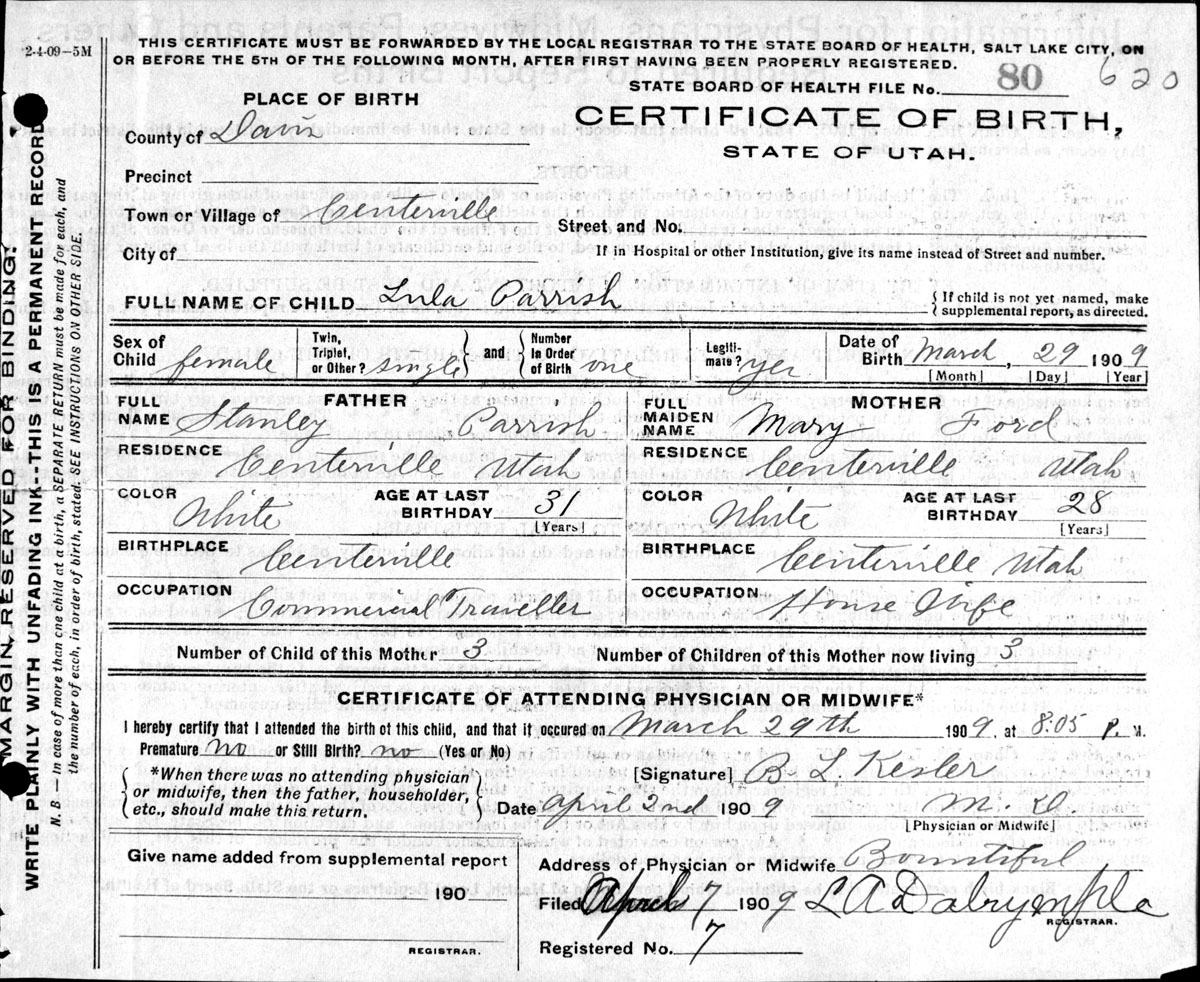 2-4-09-5M
THIS CERTIFICATE MUST BE FORWARDED BY THE LOCAL REGISTRAR TO THE STATE BOARD OF HEALTH, SALT LAKE CITY, ON
OR BEFORE THE 5TH OF THE FOLLOWING MONTH, AFTER FIRST HAVING BEEN PROPERLY REGISTERED.
STATE BOARD OF HEALTH FILE No. 80 620
PLACE OF BIRTH
CERTIFICATE OF BIRTH,
STATE OF UTAH.
County of Davis
Precinct
Town or Village of Centerville
Street and No.
City of
If in Hospital or other Institution, give its name instead of Street and number.
FULL NAME OF CHILD Lula Parrish { If child is not yet named, make
supplemental report, as directed.
Sex of Child female Twin, Triplet, or Other? single and Number in Order of Birth one Legiti-mate? yes Date of Birth March, 29 1909
[Month] [Day] [Year]
FATHER
FULL NAME Stanley Parrish
RESIDENCE Centerville Utah
COLOR White AGE AT LAST BIRTHDAY 31
[Years]
BIRTHPLACE Centerville
OCCUPATION Commercial Traveller
MOTHER
FULL MAIDEN NAME Mary Ford
RESIDENCE Centerville Utah
COLOR White AGE AT LAST BIRTHDAY 28
[Years]
BIRTHPLACE Centerville Utah
OCCUPATION House Wife
Number of Child of this Mother 3 Number of Children of this Mother now living 3
CERTIFICATE OF ATTENDING PHYSICIAN OR MIDWIFE*
I hereby certify that I attended the birth of this child, and that it occured on March 29th 1909, at 8:05 P. M.
Premature no or Still Birth? no (Yes or No)
*When there was no attending physician
or midwife, then the father, householder,
etc., should make this return.
[Signature] B. L. Kesler
Date April 2nd 1909 M. D.
[Physician or Midwife]
Give name added from supplemental report
190
REGISTRAR.
Address of Physician or Midwife Bountiful
Filed April 7 1909 L A Dalrymple
REGISTRAR.
Registered No. 7
MARGIN RESERVED FOR BINDING?
WRITE PLAINLY WITH UNFADING INK--THIS IS A PERMANENT RECORD
N. B. — In case of more than one child at a birth, a SEPARATE RETURN must be made for each, and
the number of each, in order of birth, stated. SEE INSTRUCTIONS ON OTHER SIDE.